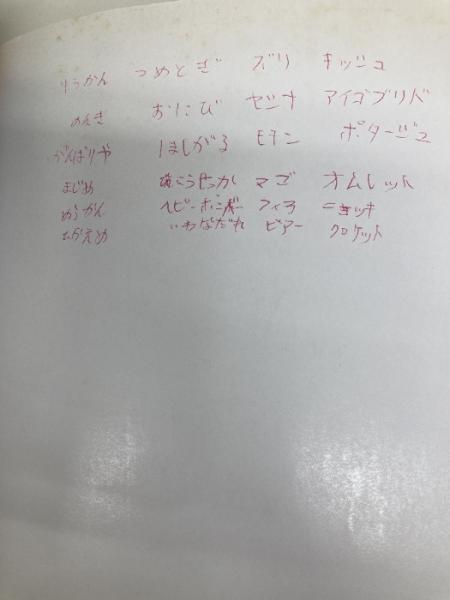 りうかん つめとぎ ズリ キッシュ
のんき おにび セシナ アイゴブリド
がんばりや ほしがる モモン ポタージュ
まじめ マゴ オムレット
ゆうかん ヘビーボンバー フィラ ニョッキ
ひかえめ いわなだれ ビアー クロケット